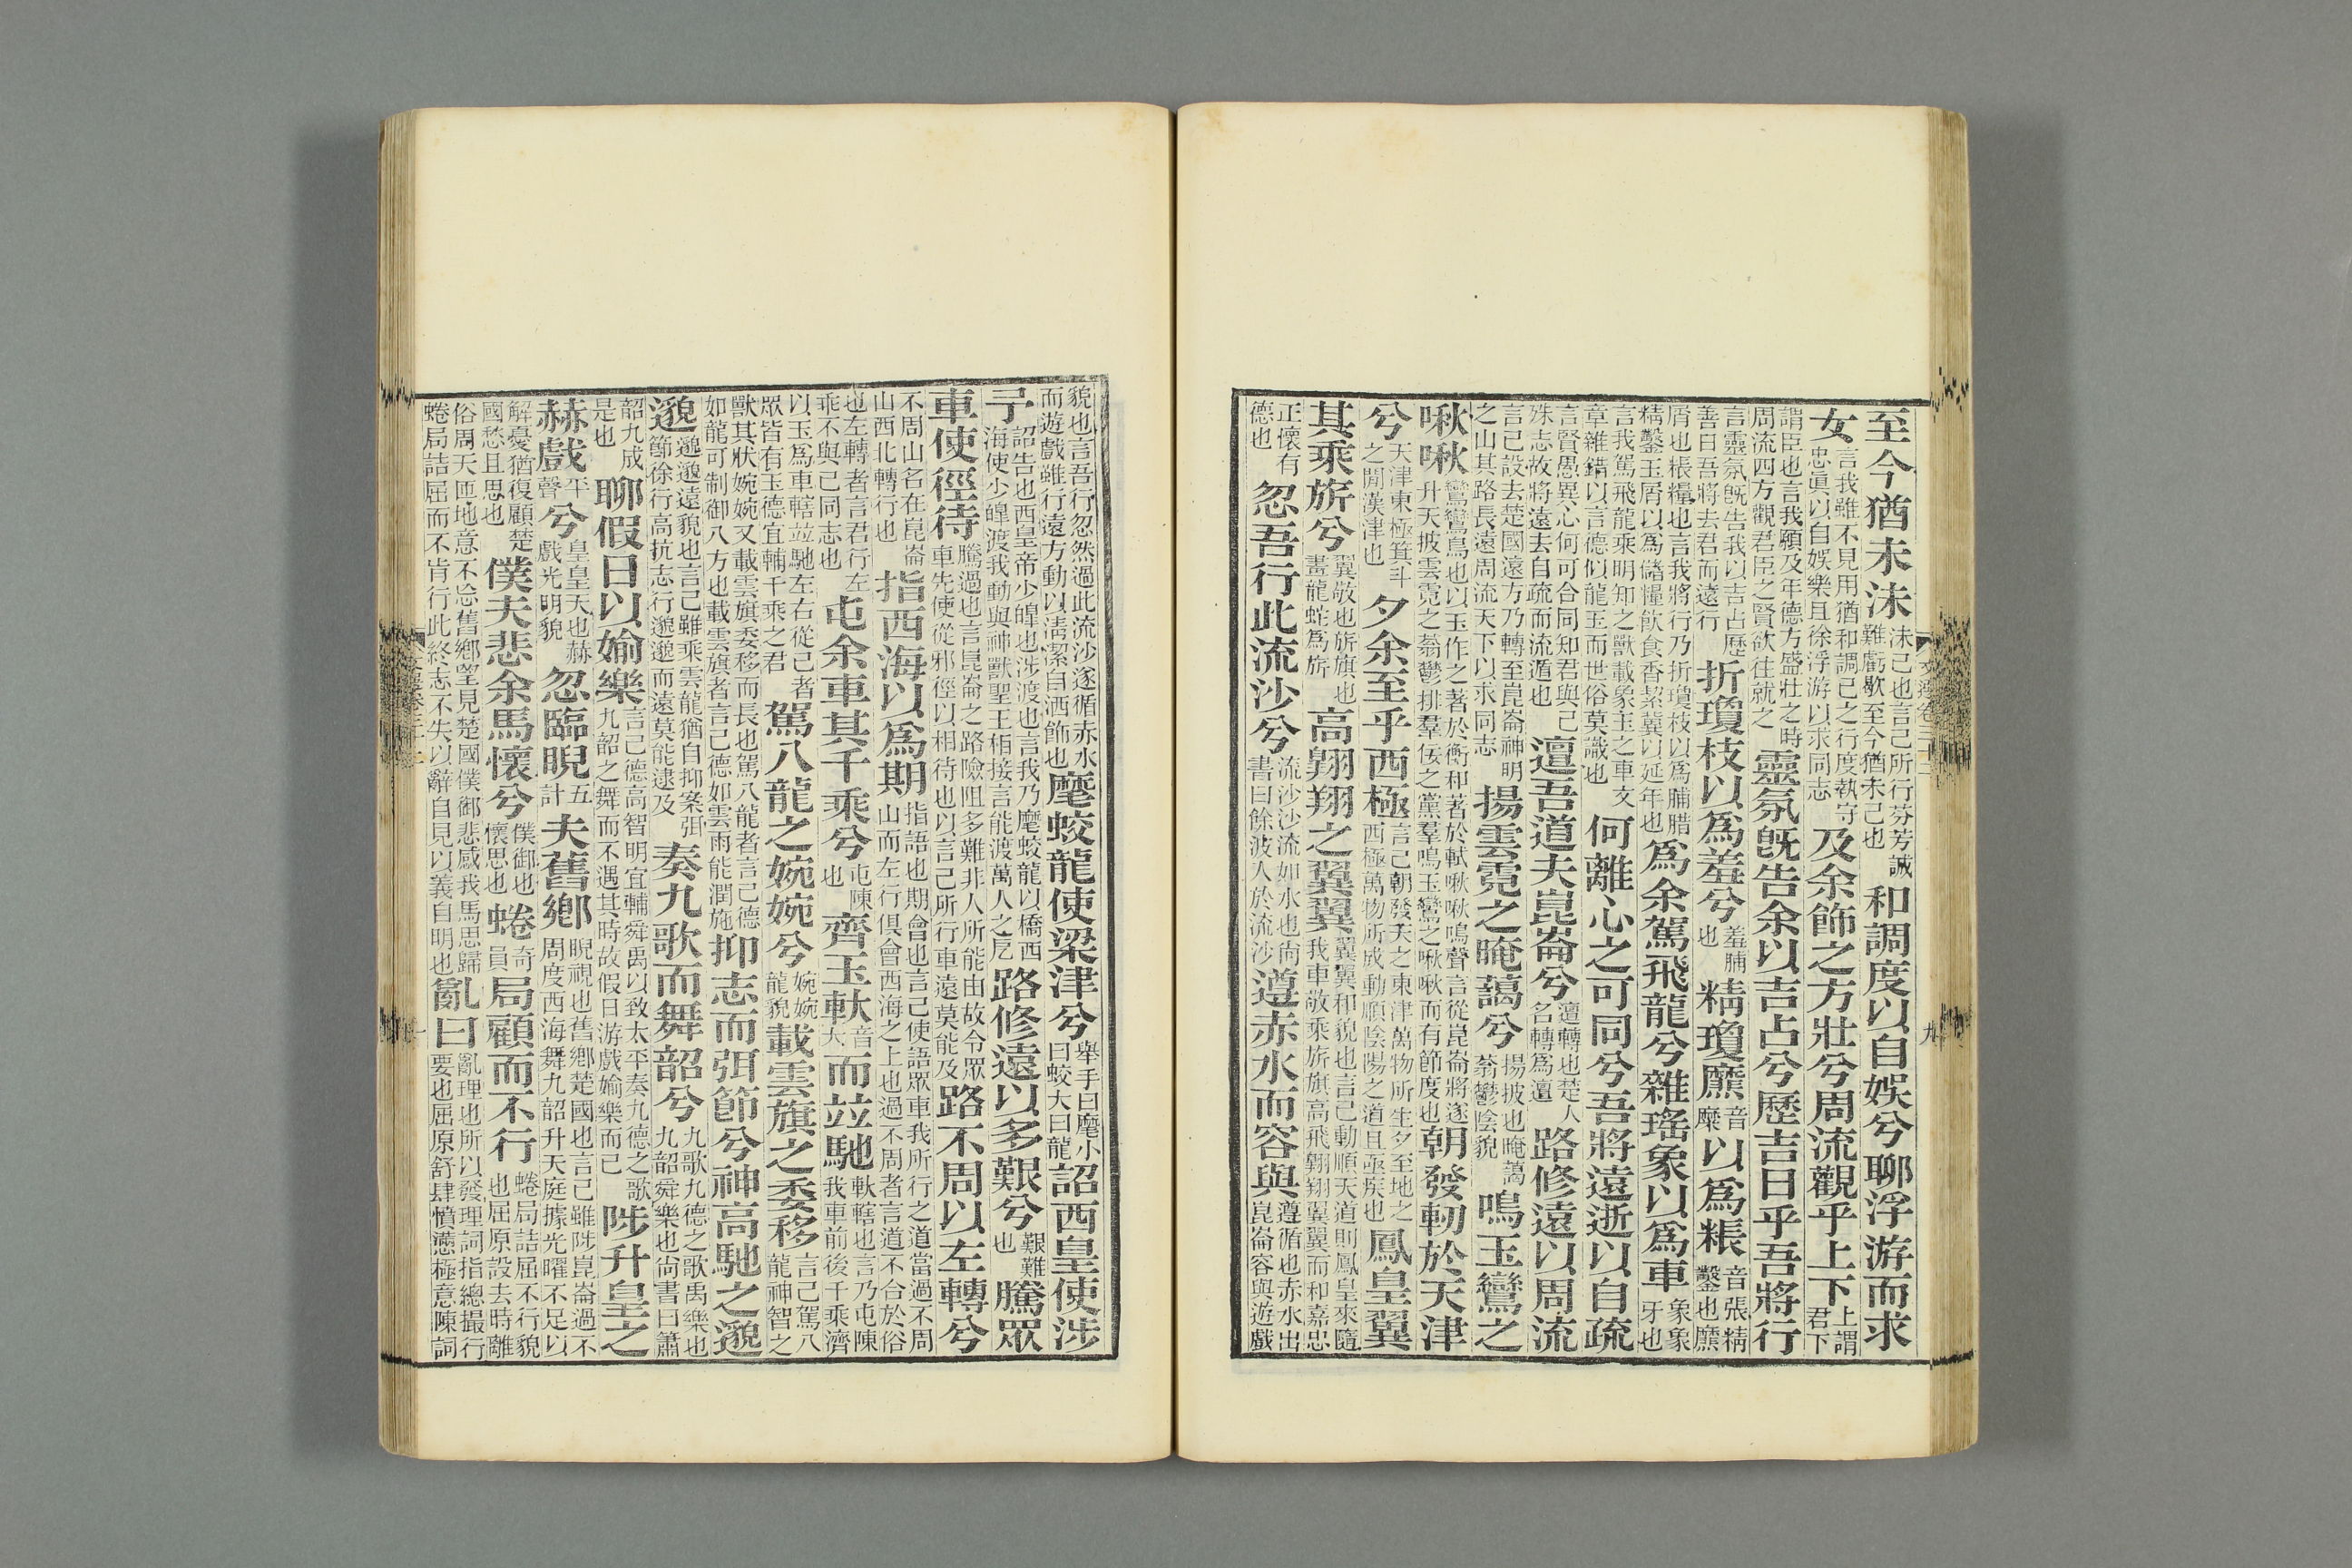 至今猶未沬沬已也言己所行芬芳誠難虧歇至今猶未已也和調度以自娛兮聊浮游而求
女言我雖不見用猶和調己之行度執守忠眞以自娛樂且徐浮游以求同志及余飾之方壯兮周流觀乎上下上謂君下
謂臣也言我願及年德方盛壯之時周流四方觀君臣之賢欲往就之靈氛旣告余以吉占兮歷吉日乎吾將行
言靈氛旣告我以吉占歷善日吾將去君而遠行折瓊枝以爲羞兮羞脯也精瓊爢音糜以爲粻音張精鑿也爢
屑也粻糧也言我將行乃折瓊枝以爲脯腊精鑿玉屑以爲儲糧飮食香潔冀以延年也爲余駕飛龍兮雜瑤象以爲車象象牙也
言我駕飛龍乘明知之獸載象玉之車文章雜錯以言德似龍玉而世俗莫識也何離心之可同兮吾將遠逝以自疏
言賢愚異心何可合同知君與己殊志故將遠去自疏而流遁也邅吾道夫崑崙兮邅轉也楚人名轉爲邅路修遠以周流
言己設去楚國遠方乃轉至崑崙神明之山其路長遠周流天下以求同志揚雲霓之晻藹兮揚披也晻藹蓊鬱陰貌鳴玉鸞之
啾啾鸞鸞鳥也以玉作之著於衡和著於軾啾啾鳴聲言從崑崙將遂升天披雲霓之蓊鬱排羣佞之黨羣鳴玉鸞之啾啾而有節度也朝發軔於天津
兮天津東極箕斗之閒漢津也夕余至乎西極言己朝發天之東津萬物所生夕至地之西極萬物所成動順陰陽之道且亟疾也鳳皇翼
其乘旂兮翼敬也旂旗也畫龍蛇爲旂高翺翔之翼翼翼翼和貌也言己動順天道則鳳皇來隨我車敬乘旂旗高飛翺翔翼翼而和嘉忠
正懷有德也忽吾行此流沙兮流沙沙流如水也尙書曰餘波入於流沙遵赤水而容與遵循也赤水出崑崙容與遊戲
貌也言吾行忽然過此流沙遂循赤水而遊戲雖行遠方動以淸潔自洒飾也麾蛟龍使梁津兮舉手曰麾小曰蛟大曰龍詔西皇使涉
予詔告也西皇帝少皥也涉渡也言我乃麾蛟龍以橋西海使少皥渡我動與神獸聖王相接言能渡萬人之厄路修遠以多艱兮艱難也騰眾
車使徑待騰過也言崑崙之路險阻多難非人所能由故令眾車先使從邪徑以相待也以言己所行車遠莫能及路不周以左轉兮
不周山名在崑崙山西北轉行也指西海以爲期指語也期會也言己使語眾車我所行之道當過不周山而左行俱會西海之上也過不周者言道不合於俗
也左轉者言君行左乖不與己同志也屯余車其千乘兮屯陳也齊玉軑音大而竝馳軑轄也言乃屯陳我車前後千乘濟
以玉爲車轄竝馳左右從己者眾皆有玉德宜輔千乘之君駕八龍之婉婉兮婉婉龍貌載雲旗之委移言己駕八龍神智之
獸其狀婉婉又載雲旗委移而長也駕八龍者言己德如龍可制御八方也載雲旗者言己德如雲雨能潤施抑志而弭節兮神高馳之邈
邈邈邈遠貌也言己雖乘雲龍猶自抑案弭節徐行高抗志行邈邈而遠莫能逮及奏九歌而舞韶兮九歌九德之歌禹樂也九韶舜樂也尙書曰簫
韶九成是也聊假日以婾樂言己德高智明宜輔舜禹以致太平奏九德之歌九韶之舞而不遇其時故假日游戲婾樂而已陟升皇之
赫戲平聲兮皇皇天也赫戲光明貌忽臨睨五計夫舊鄉睨視也舊鄉楚國也言己雖陟崑崙過不周度西海舞九韶升天庭據光曜不足以
解憂猶復顧楚國愁且思也僕夫悲余馬懷兮僕御也懷思也蜷奇員局顧而不行蜷局詰屈不行貌也屈原設去時離
俗周天匝地意不忘舊鄉望見楚國僕御悲感我馬思歸蜷局詰屈而不肯行此終志不失以辭自見以義自明也亂曰亂理也所以發理詞指總撮行要也屈原舒肆憤懣極意陳詞